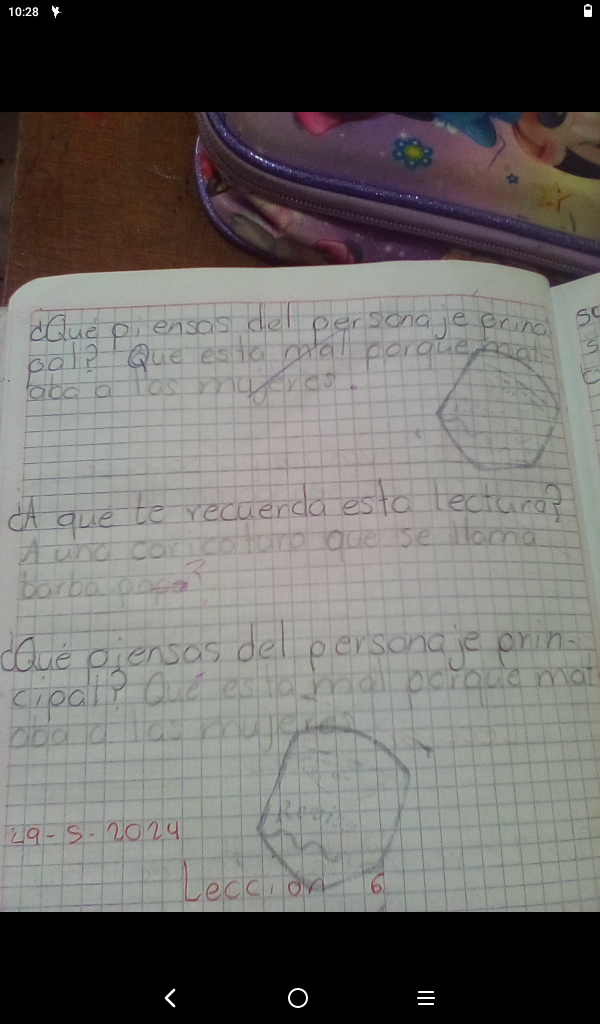 10:28
¿Qué piensas del personaje princi
pal? Que esta mal porque mat
aba a las mujeres.
¿A que te recuerda esta lectura?
A una caricatura que se llama
barba
¿Qué piensas del personaje prin-
cipal? Qué esta mal porque mat
aba a las mujeres
29-5-2024
Lección 6